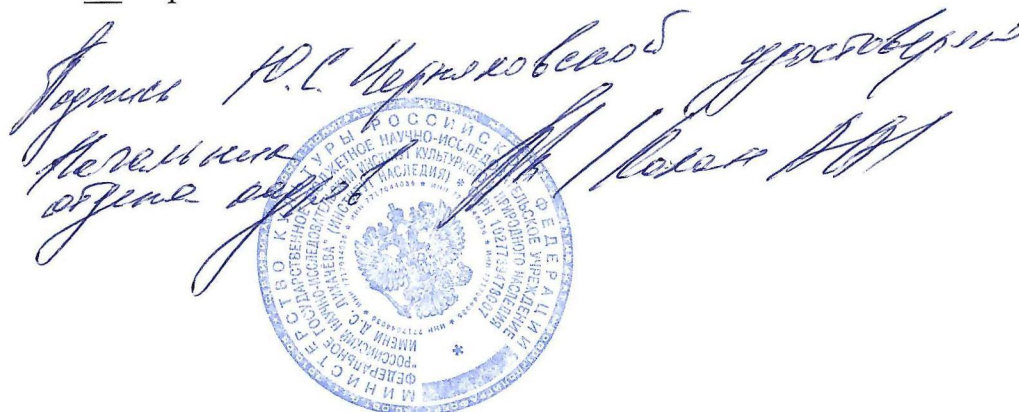 Подпись Ю.С. Черняховской удостоверяю
Начальник
отдела кадров
МИНИСТЕРСТВО КУЛЬТУРЫ РОССИЙСКОЙ ФЕДЕРАЦИИ
ФЕДЕРАЛЬНОЕ ГОСУДАРСТВЕННОЕ БЮДЖЕТНОЕ НАУЧНО-ИССЛЕДОВАТЕЛЬСКОЕ УЧРЕЖДЕНИЕ
"РОССИЙСКИЙ НАУЧНО-ИССЛЕДОВАТЕЛЬСКИЙ ИНСТИТУТ КУЛЬТУРНОГО И ПРИРОДНОГО НАСЛЕДИЯ
ИМЕНИ Д.С. ЛИХАЧЁВА" (ИНСТИТУТ НАСЛЕДИЯ)